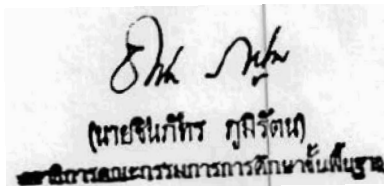 (นายชินภัทร ภูมิรัตน)
เลขาธิการคณะกรรมการการศึกษาขั้นพื้นฐาน